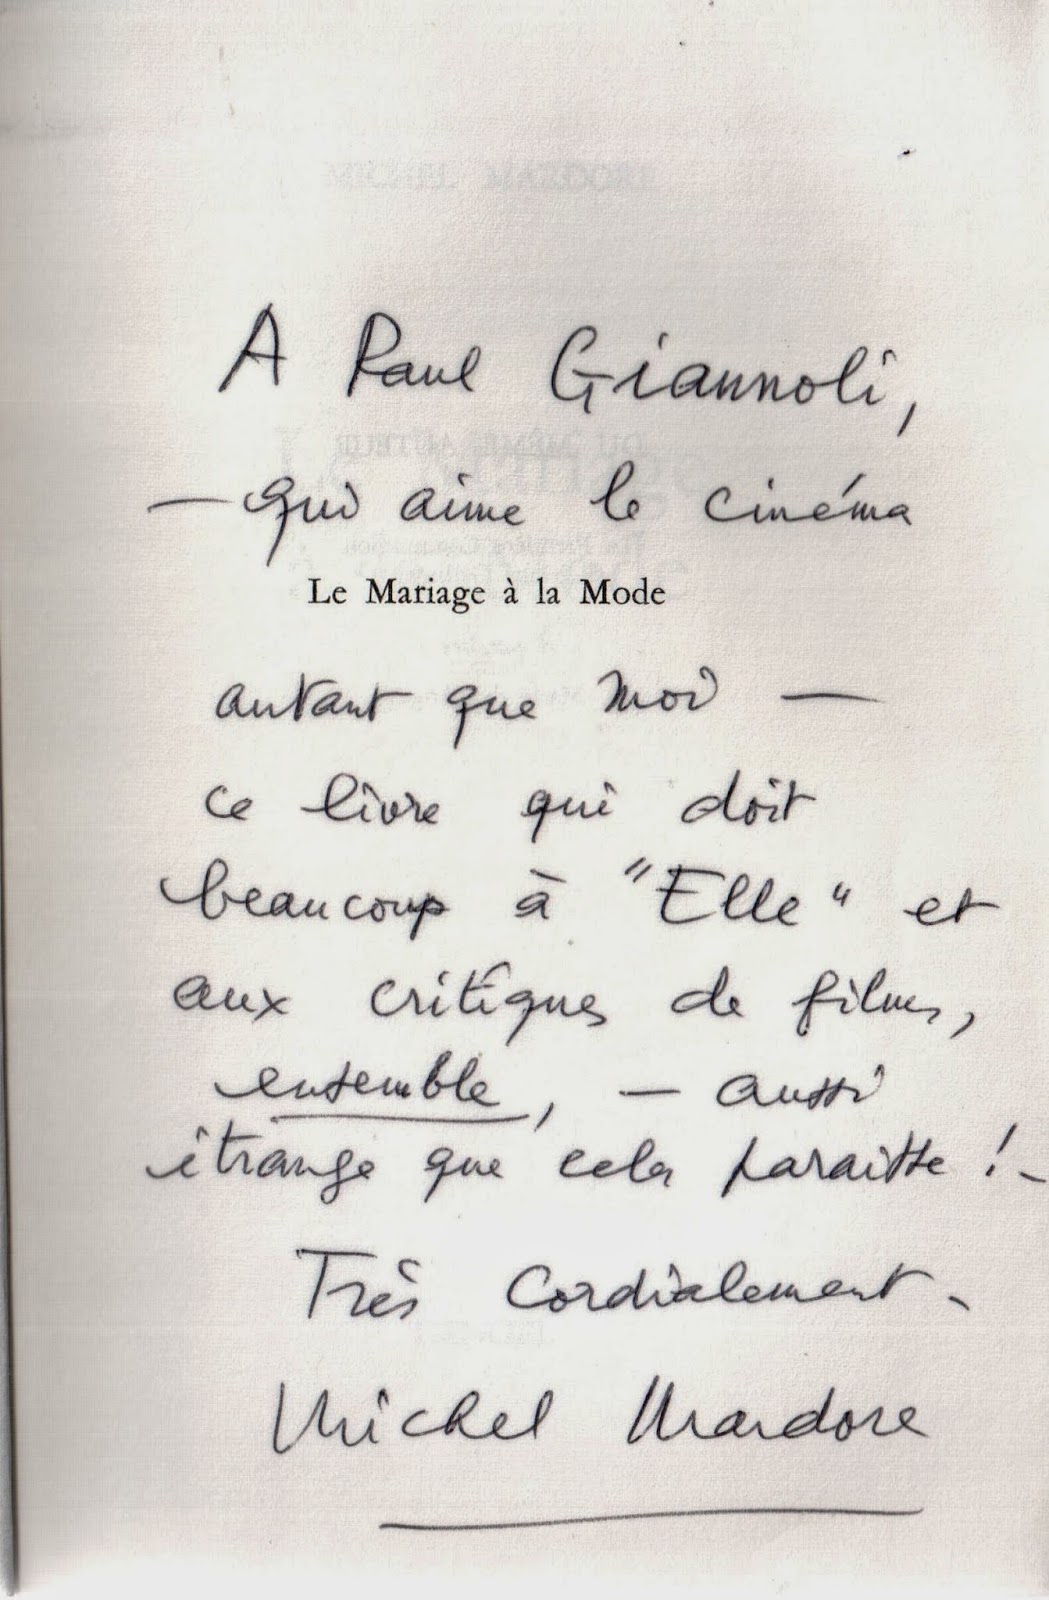 A Paul Giannoli,
— qui aime le cinéma
Le Mariage à la Mode
autant que moi —
ce livre qui doit
beaucoup à "Elle" et
aux critiques de films,
ensemble, — aussi
étrange que cela paraisse ! -
Très Cordialement -
Michel Mardore